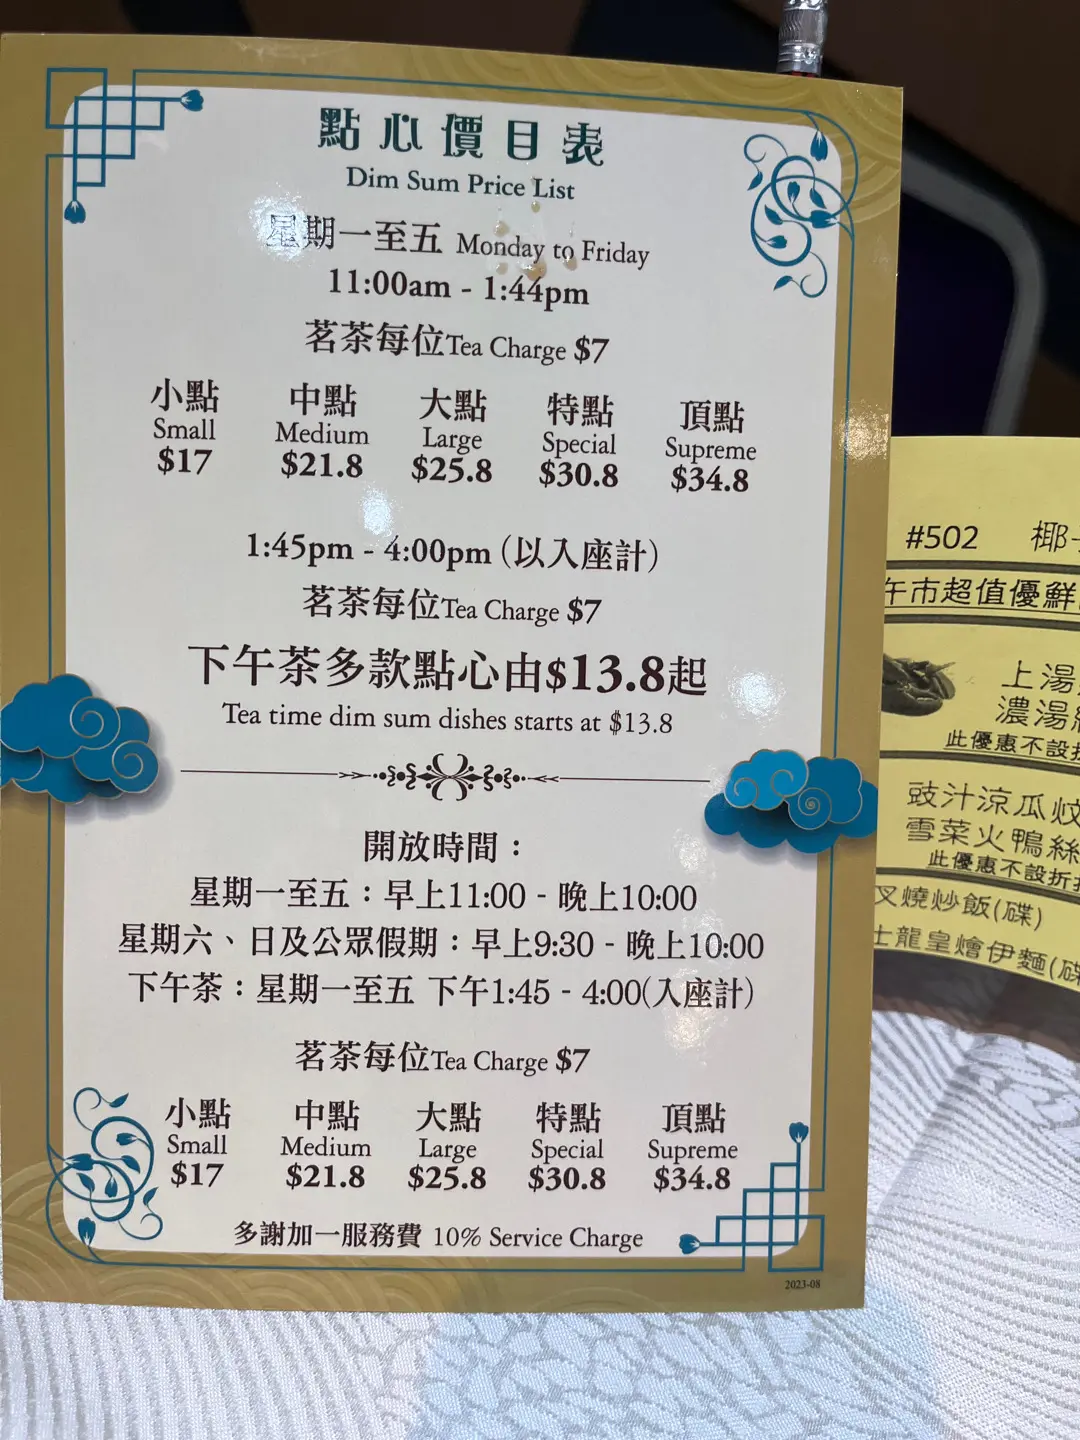 點心價目表
Dim Sum Price List
星期一至五 Monday to Friday
11:00am - 1:44pm
茗茶每位Tea Charge $7
小點 中點 大點 特點 頂點
Small Medium Large Special Supreme
$17 $21.8 $25.8 $30.8 $34.8
1:45pm - 4:00pm (以入座計)
茗茶每位Tea Charge $7
下午茶多款點心由$13.8起
Tea time dim sum dishes starts at $13.8
開放時間：
星期一至五：早上11:00 - 晚上10:00
星期六、日及公眾假期：早上9:30 - 晚上10:00
下午茶：星期一至五 下午1:45 - 4:00(入座計)
茗茶每位Tea Charge $7
小點 中點 大點 特點 頂點
Small Medium Large Special Supreme
$17 $21.8 $25.8 $30.8 $34.8
多謝加一服務費 10% Service Charge
2023-08
#502 椰
午市超值優鮮
上湯
濃湯
此優惠不設折
豉汁涼瓜炆
雪菜火鴨絲
此優惠不設折
叉燒炒飯(碟)
龍皇燴伊麵(碟